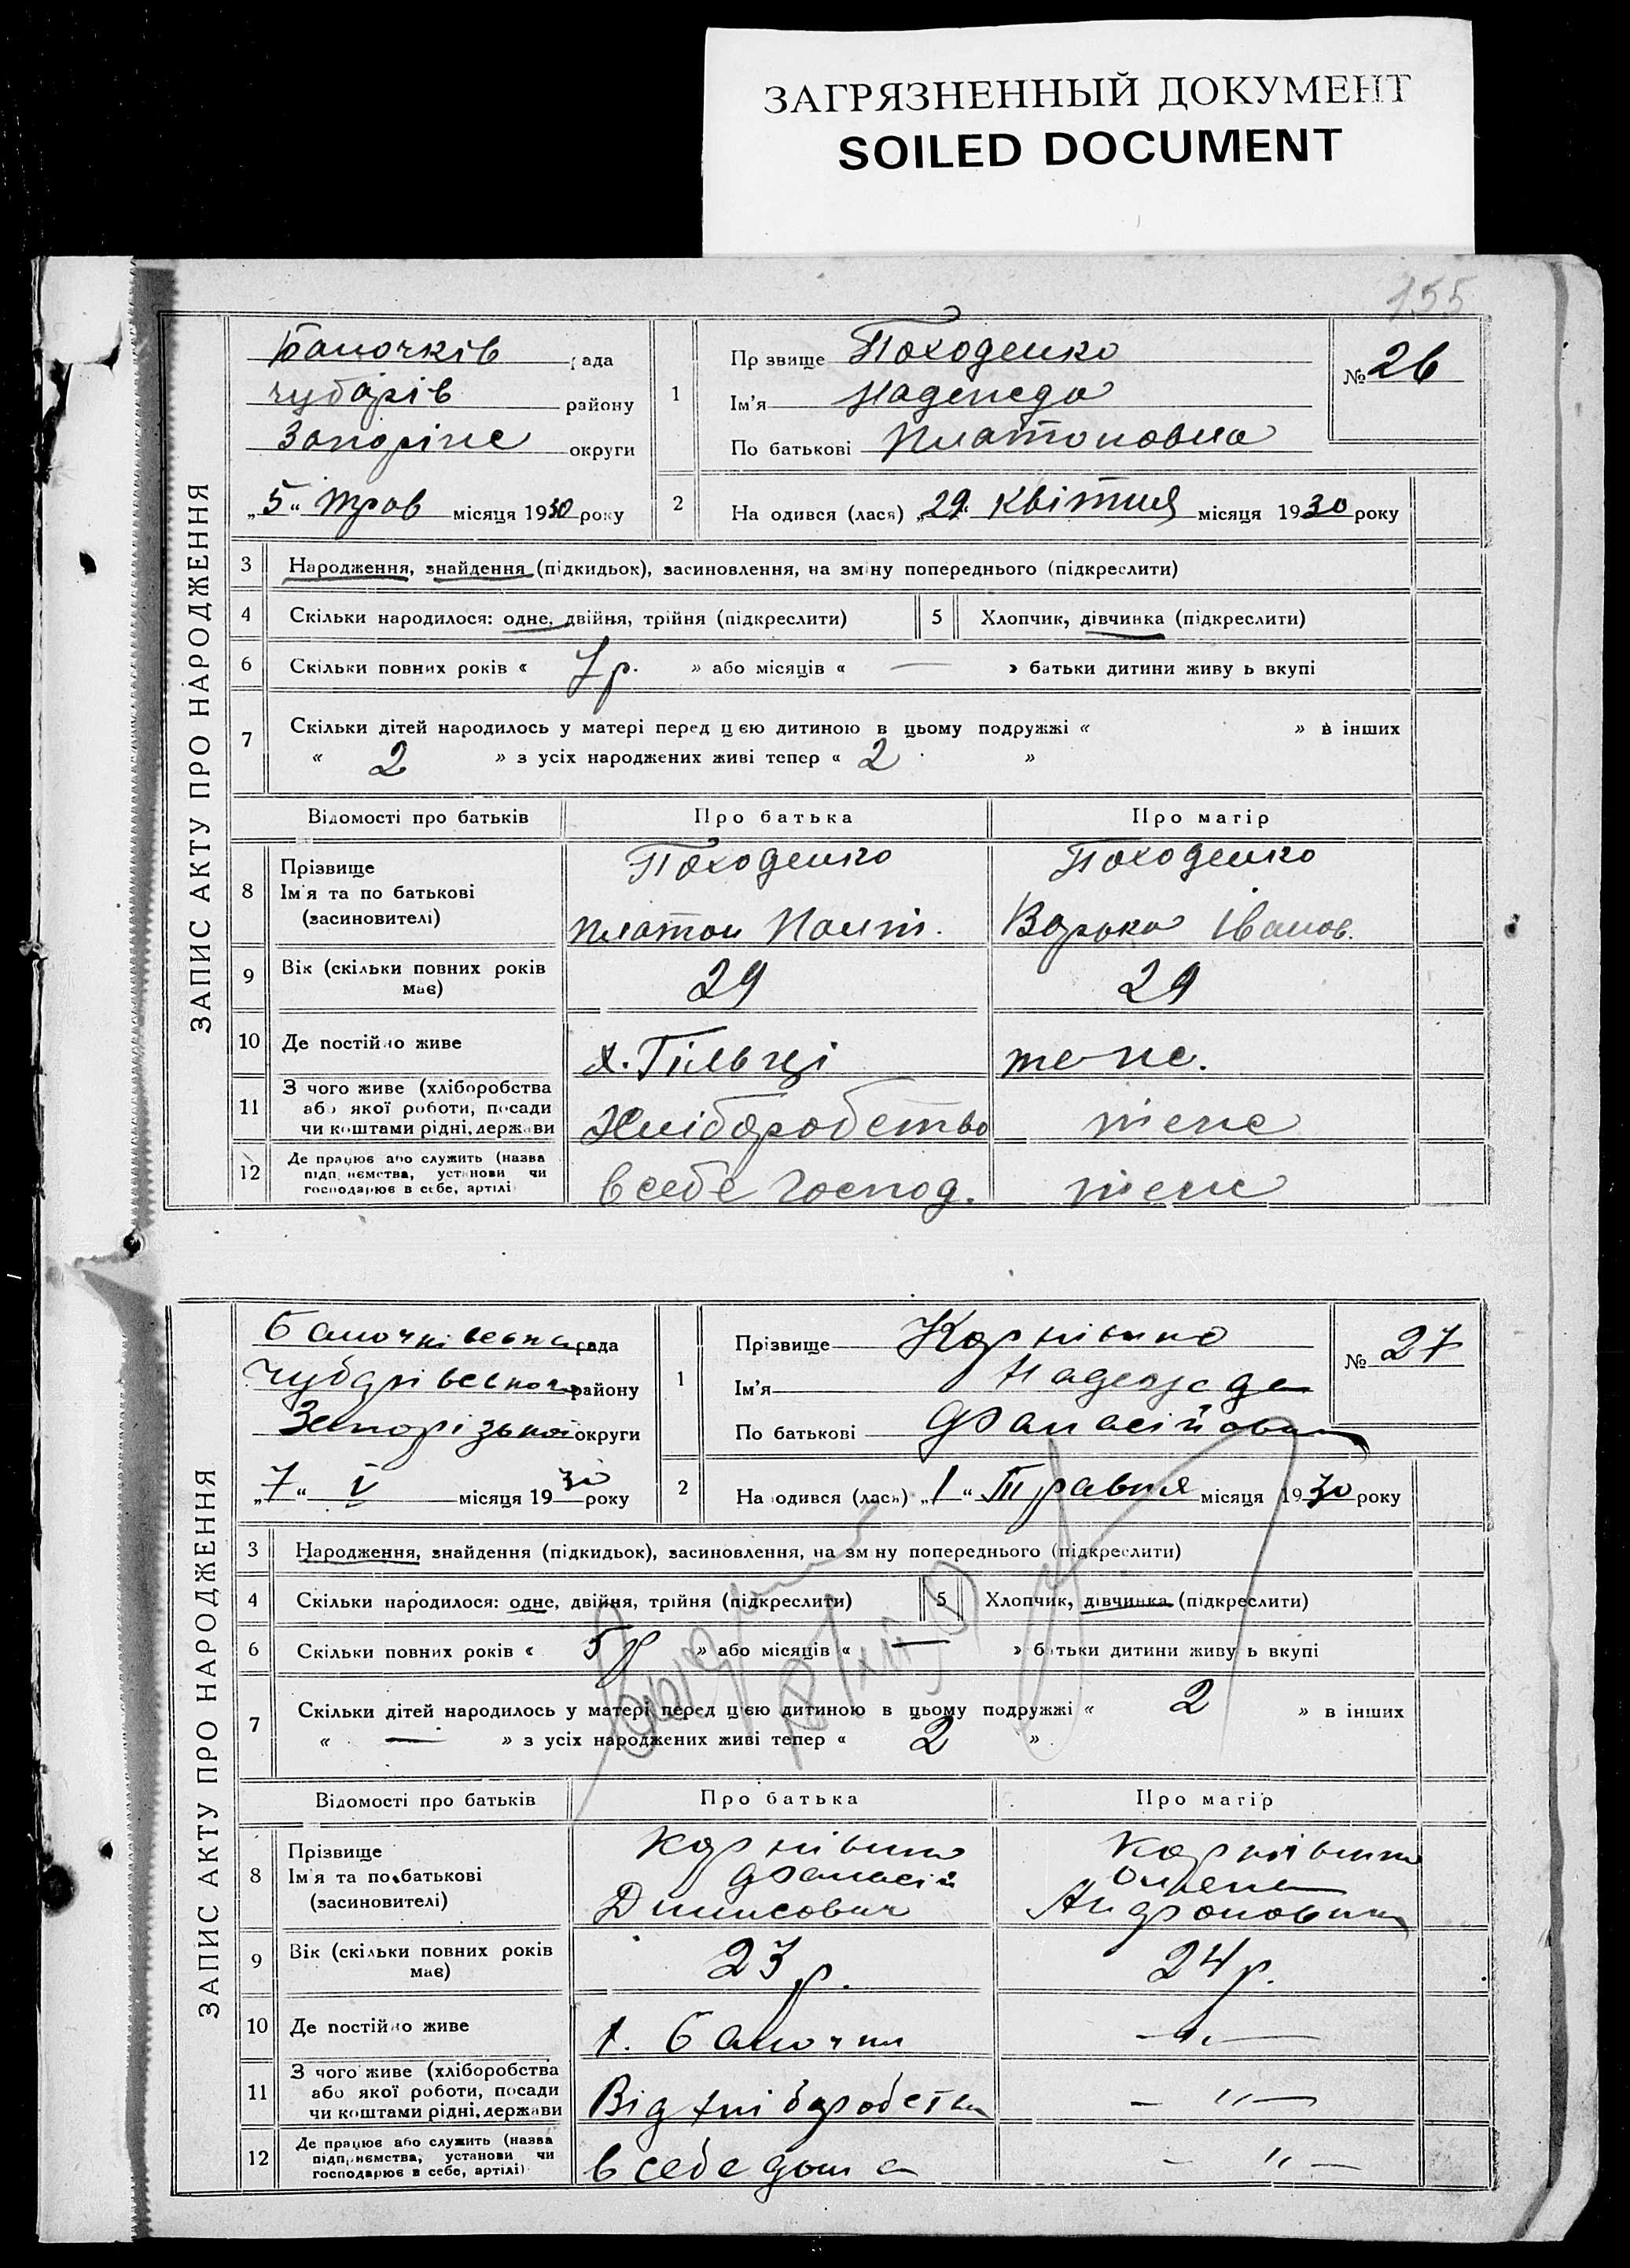 ЗАГРЯЗНЕННЫЙ ДОКУМЕНТ
SOILED DOCUMENT
155
ЗАПИС АКТУ ПРО НАРОДЖЕННЯ
Баночків рада
Чубарів району
Запоріже округи
„5“ трав місяця 1930 року
1
Прізвище Походенко
Ім'я Надежда
По батькові Платоновна
№ 26
2
Народився (лася) „29“ Квітня місяця 1930 року
3 Народження, знайдення (підкидьок), засиновлення, на зміну попереднього (підкреслити)
4 Скільки народилося: одне, двійня, трійня (підкреслити)
5 Хлопчик, дівчинка (підкреслити)
6 Скільки повних років « 7 р. » або місяців « — » батьки дитини живуть вкупі
7 Скільки дітей народилось у матері перед цією дитиною в цьому подружжі « » в інших
« 2 » з усіх народжених живі тепер « 2 »
Відомості про батьків Про батька Про матір
8 Прізвище
Ім'я та по батькові
(засиновителі)
Походенко
Платон
Походенко
Варька Іванов.
9 Вік (скільки повних років має) 29 29
10 Де постійно живе х. Гільці теже.
11 З чого живе (хліборобства
або якої роботи, посади
чи коштами рідні, держави
Хліборобство теже
12 Де працює або служить (назва
підприємства, установи чи
господарює в себе, артілі)
в себе господ. теже
ЗАПИС АКТУ ПРО НАРОДЖЕННЯ
Баночківська рада
Чубарівського району
Запорізької округи
„7“ V місяця 1930 року
1
Прізвище
Ім'я Надежда
По батькові Фанасійовна
№ 27
2
Народився (лася) „1“ Травня місяця 1930 року
3 Народження, знайдення (підкидьок), засиновлення, на зміну попереднього (підкреслити)
4 Скільки народилося: одне, двійня, трійня (підкреслити)
5 Хлопчик, дівчинка (підкреслити)
6 Скільки повних років « 5 р » або місяців « — » батьки дитини живуть вкупі
7 Скільки дітей народилось у матері перед цією дитиною в цьому подружжі « 2 » в інших
« — » з усіх народжених живі тепер « 2 »
Відомості про батьків Про батька Про матір
8 Прізвище
Ім'я та по батькові
(засиновителі)
Фанасій
Денисович
Олена
Андроновна
9 Вік (скільки повних років має) 23 р. 24 р.
10 Де постійно живе Баночки —„—
11 З чого живе (хліборобства
або якої роботи, посади
чи коштами рідні, держави
Від хліборобства —„—
12 Де працює або служить (назва
підприємства, установи чи
господарює в себе, артілі)
в себе дома —„—